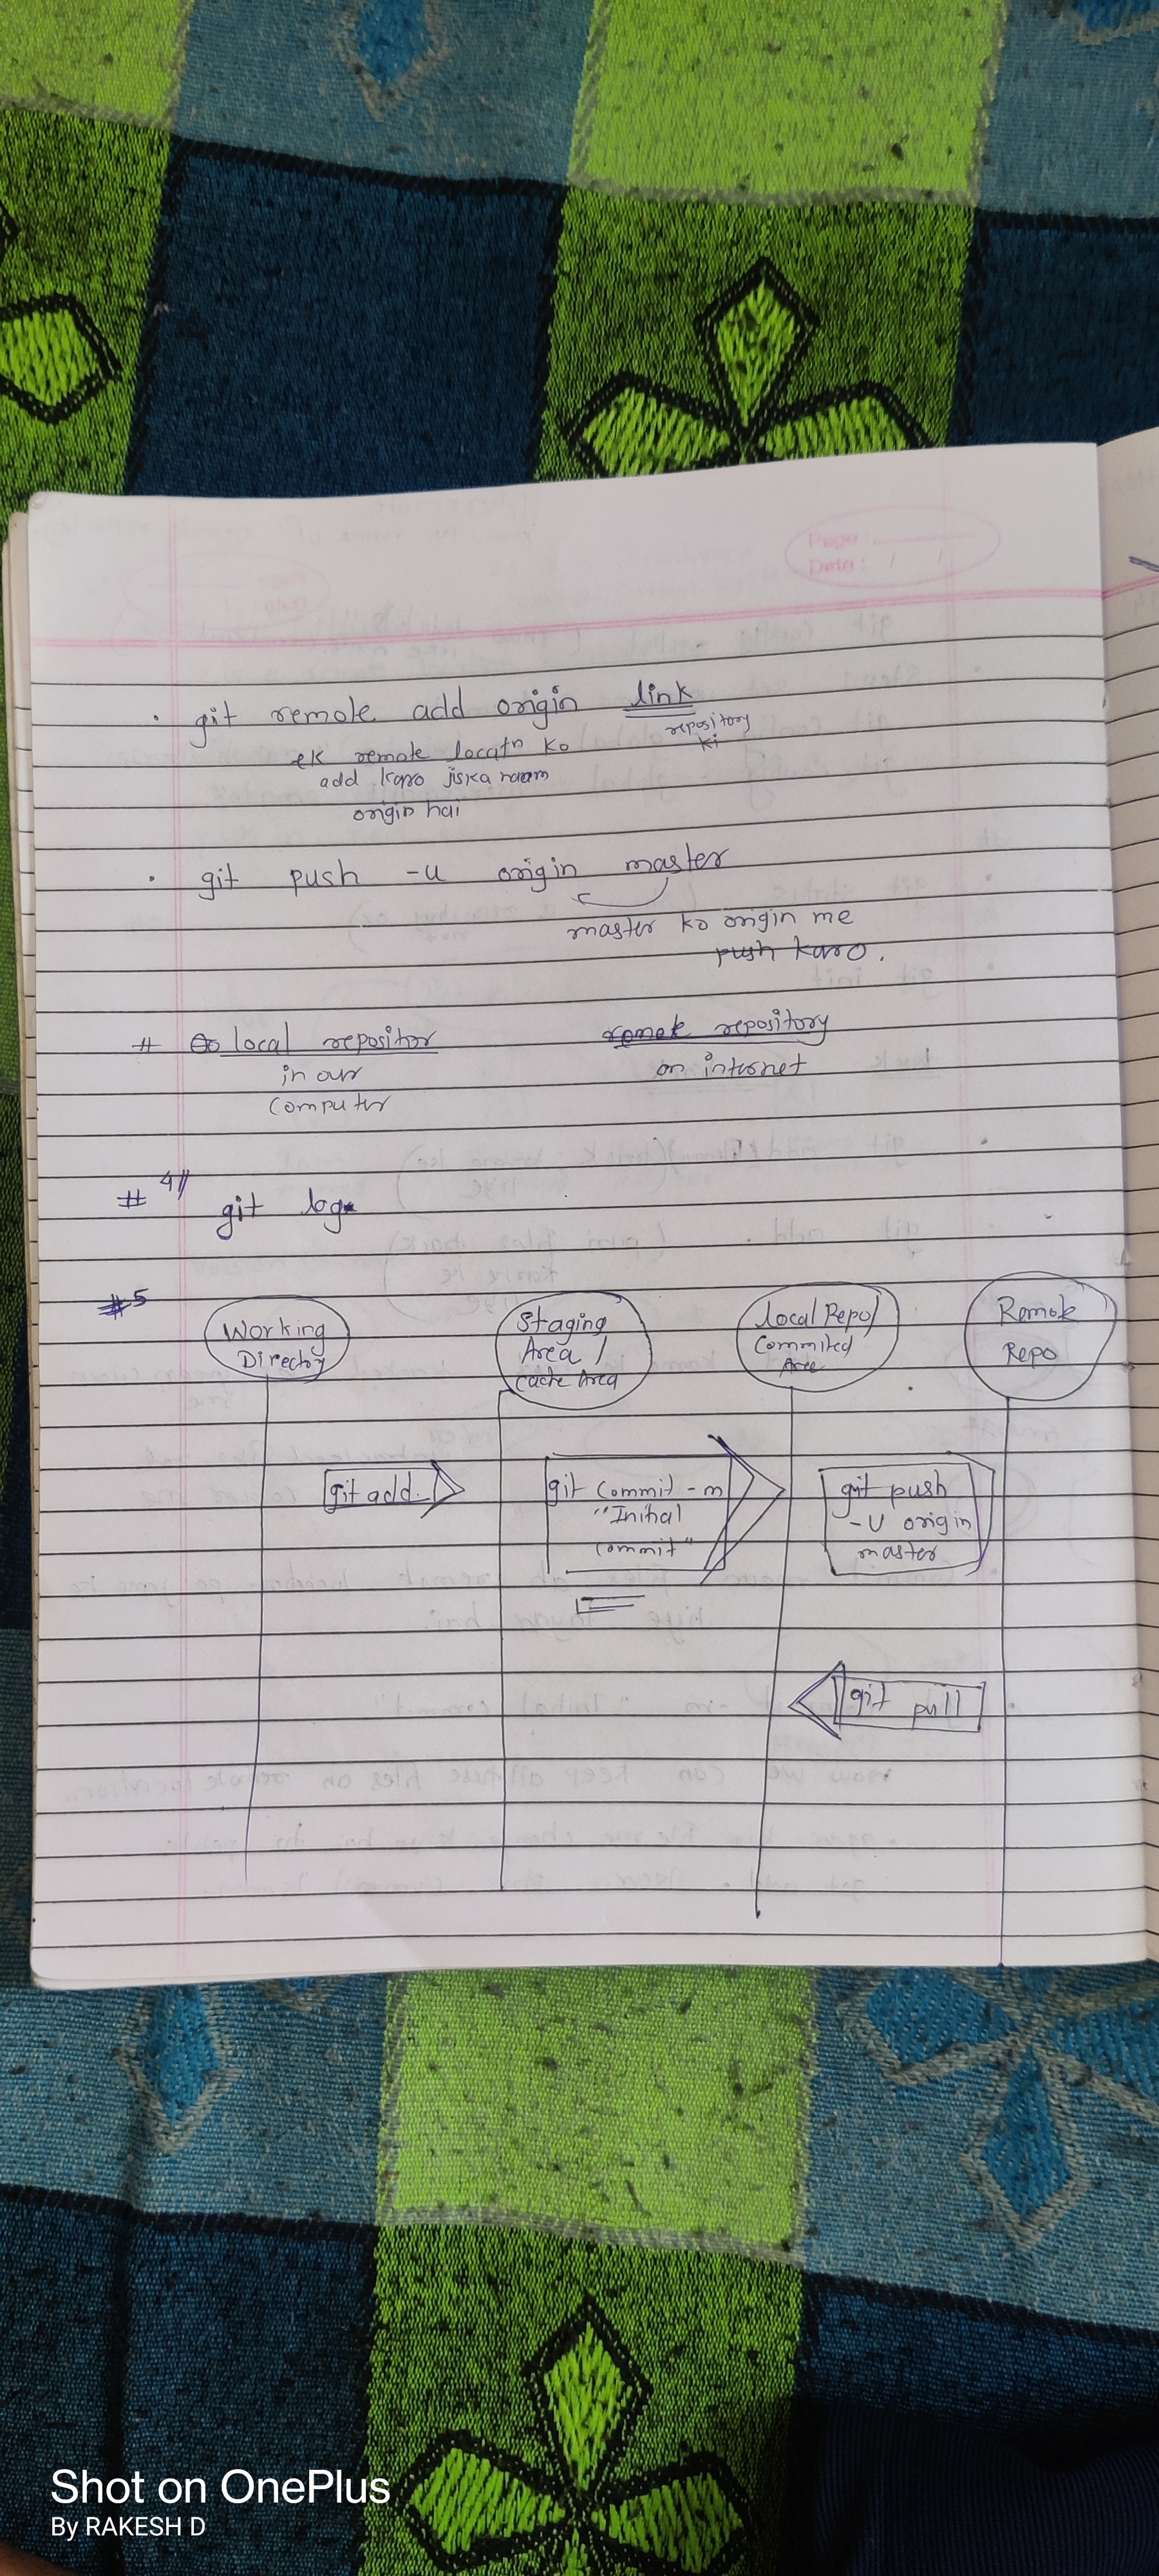 Page :
Date : / /
. git remote add origin link
repository
ki
ek remote locatn ko
add karo jiska naam
origin hai
. git push -u origin master
master ko origin me
push karo.
# local repositor remote repository
in our on internet
computer
# 4// git log
#5
Working Directoy
Staging Area / Cache Area
local Repo/ Commited Area
Remote Repo
git add .
git commit -m
"Initial
commit"
git push
-U origin
master
git pull
Shot on OnePlus
By RAKESH D